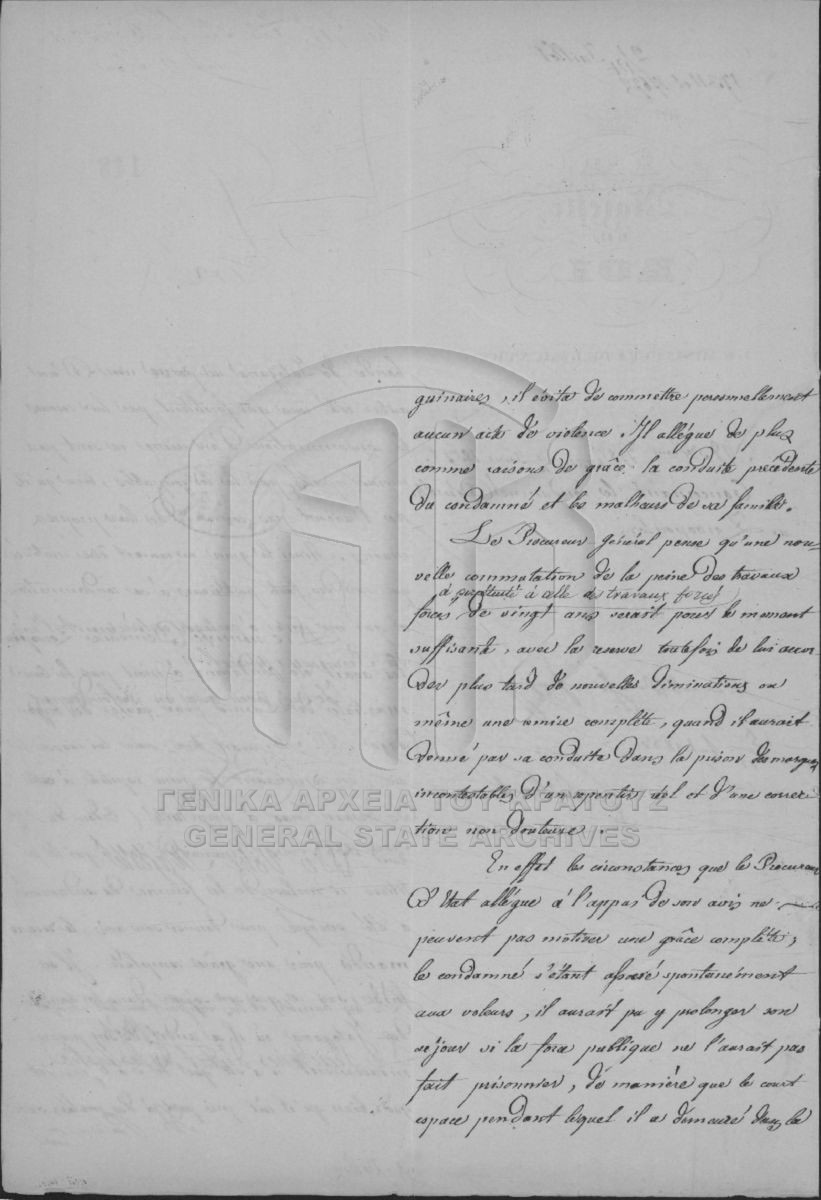 guinaires, il évita de commettre personnellement
aucun acte de violence. Il allégue de plus
comme raisons de grâce la conduite précédente
du condamné et les malheurs de sa famille.
Le Procureur Général pense qu'une nou-
velle commutation de la peine des travaux
à perpétuité à celle de travaux forcés
forcés, de vingt ans serait pour le moment
suffisante, avec la reserve toutefois de lui accor
der plus tard de nouvelles diminutions ou
même une remise complête, quand il aurait
donné par sa conduite dans la prison des marques
incontestables d'un repentir réel et d'une correc-
tion non douteuse.
En effet les circonstances que le Procureur
d'Etat allégue à l'appui de son avis ne
peuvent pas motiver une grâce complête,
le condamné s'étant spontanément
aux voleurs, il aurait pu y prolonger son
sejour si la force publique ne l'aurait pas
fait prisonnier, de manière que le court
espace pendant lequel il a demeuré dans la
ΓΕΝΙΚΑ ΑΡΧΕΙΑ ΤΟΥ ΚΡΑΤΟΥΣ
GENERAL STATE ARCHIVES